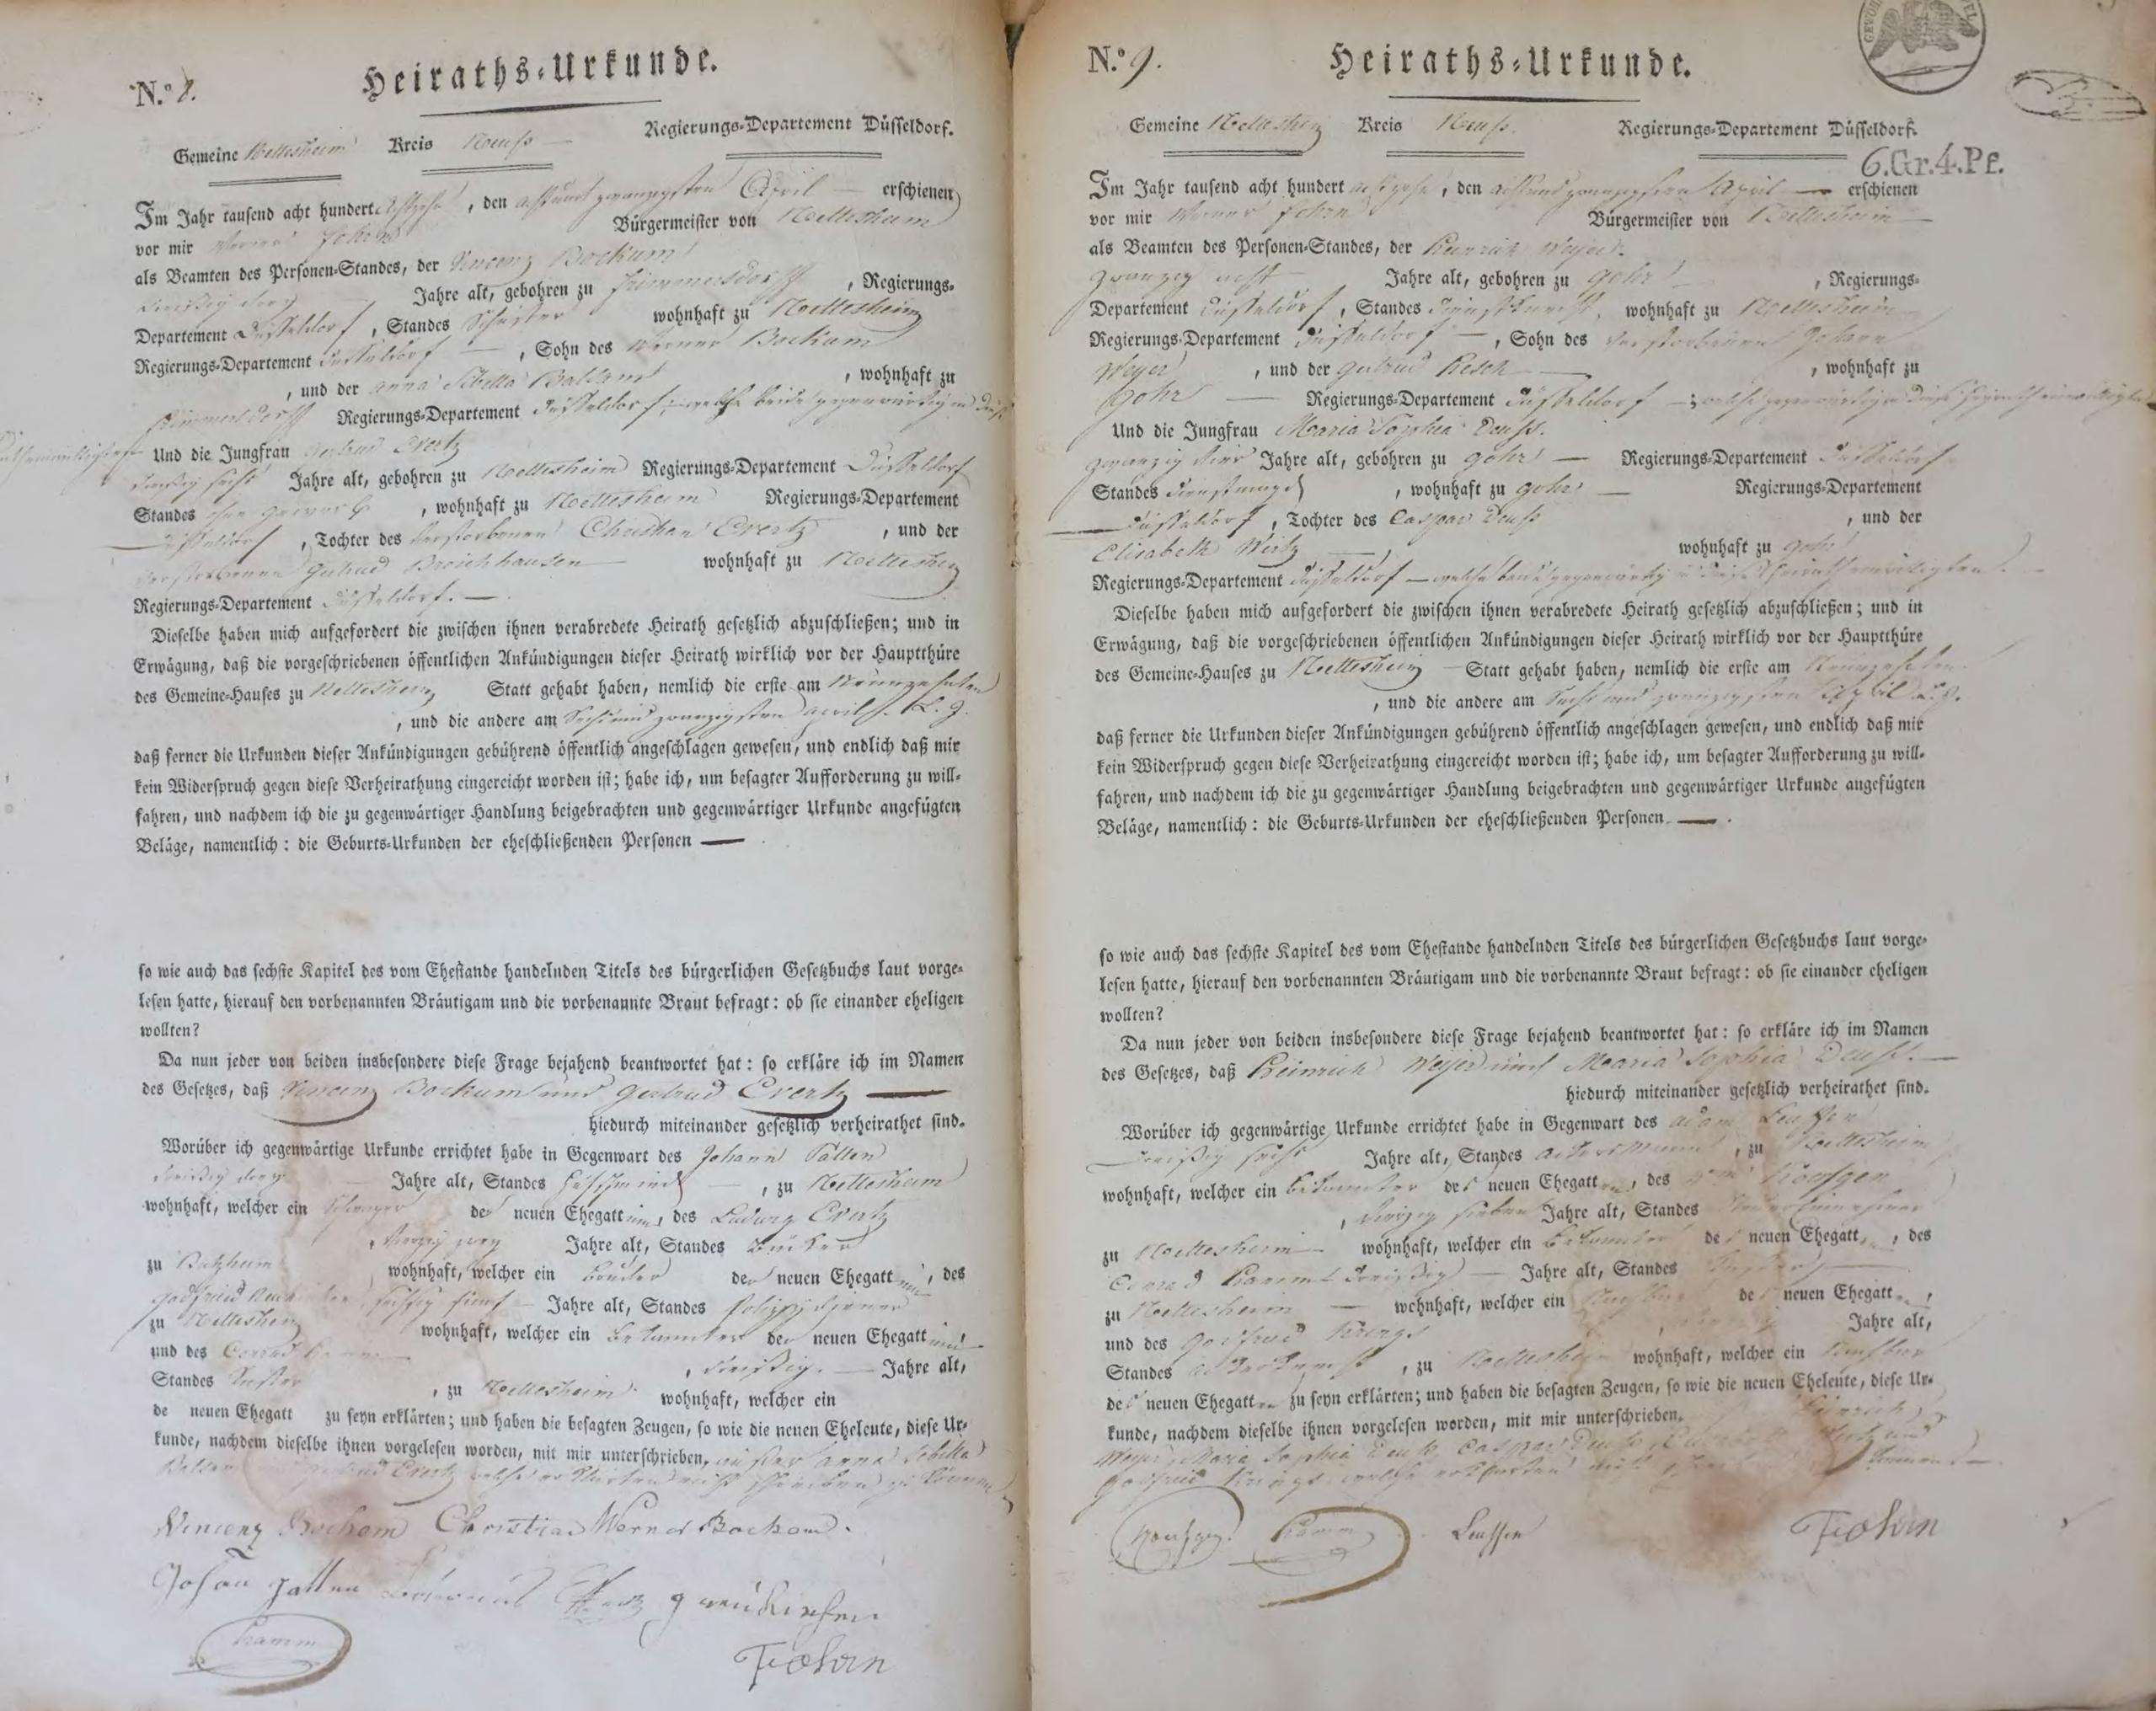 N.º 8.
Heiraths-Urkunde.
Gemeine Nettesheim Kreis Neuß
Regierungs-Departement Düsseldorf.
Im Jahr tausend acht hundert achtzehn, den achtundzwanzigsten April — erschienen
vor mir Werner Fohrn Bürgermeister von Nettesheim
als Beamten des Personen-Standes, der Vincenz Bockum
dreißig drey Jahre alt, gebohren zu Frimmersdorff, Regierungs-
Departement Düsseldorf, Standes wohnhaft zu Nettesheim
Regierungs-Departement Düsseldorf —, Sohn des Werner Bockum
, und der Anna Sibella , wohnhaft zu
Frimmersdorff Regierungs-Departement Düsseldorf, welche beide gegenwärtig in diese
Und die Jungfrau Gertrud Evertz
dreißig sechs Jahre alt, gebohren zu Nettesheim Regierungs-Departement Düsseldorf
Standes ohne Gewerb, wohnhaft zu Nettesheim Regierungs-Departement
Düsseldorf, Tochter des verstorbenen Christian Evertz, und der
verstorbenen Gertrud Breichhausen — wohnhaft zu Nettesheim
Regierungs-Departement Düsseldorf. —
Dieselbe haben mich aufgefordert die zwischen ihnen verabredete Heirath gesetzlich abzuschließen; und in
Erwägung, daß die vorgeschriebenen öffentlichen Ankündigungen dieser Heirath wirklich vor der Hauptthüre
des Gemeine-Hauses zu Nettesheim Statt gehabt haben, nemlich die erste am Neunzehnten
, und die andere am Sechsundzwanzigsten April l. J.
daß ferner die Urkunden dieser Ankündigungen gebührend öffentlich angeschlagen gewesen, und endlich daß mir
kein Widerspruch gegen diese Verheirathung eingereicht worden ist; habe ich, um besagter Aufforderung zu will-
fahren, und nachdem ich die zu gegenwärtiger Handlung beigebrachten und gegenwärtiger Urkunde angefügten
Beläge, namentlich: die Geburts-Urkunden der eheschließenden Personen —
so wie auch das sechste Kapitel des vom Ehestande handelnden Titels des bürgerlichen Gesetzbuchs laut vorge-
lesen hatte, hierauf den vorbenannten Bräutigam und die vorbenannte Braut befragt: ob sie einander eheligen
wollten?
Da nun jeder von beiden insbesondere diese Frage bejahend beantwortet hat: so erkläre ich im Namen
des Gesetzes, daß Vincenz Bockum und Gertrud Evertz —
hiedurch miteinander gesetzlich verheirathet sind.
Worüber ich gegenwärtige Urkunde errichtet habe in Gegenwart des Johann
dreißig drey — Jahre alt, Standes —, zu Nettesheim
wohnhaft, welcher ein Schwager der neuen Ehegattinn, des Ludwig Evertz
, vierzig zwey Jahre alt, Standes
zu wohnhaft, welcher ein Bruder der neuen Ehegattinn, des
Godfried sechszig fünf — Jahre alt, Standes Polizeydiener
zu Nettesheim wohnhaft, welcher ein Bekannter der neuen Ehegattinn
und des Conrad , dreißig. — Jahre alt,
Standes Küster, zu Nettesheim wohnhaft, welcher ein
de neuen Ehegatt zu seyn erklärten; und haben die besagten Zeugen, so wie die neuen Eheleute, diese Ur-
kunde, nachdem dieselbe ihnen vorgelesen worden, mit mir unterschrieben, außer Anna Sibella
Gertrud Evertz welche erklärten nicht schreiben zu können
Vincenz Bockom Christian Werner Bockom.
Kramm
Fohrn
N.º 9.
Heiraths-Urkunde.
Gemeine Nettesheim Kreis Neuß.
Regierungs-Departement Düsseldorf.
6.Gr.4.Pf.
Im Jahr tausend acht hundert achtzehn, den achtundzwanzigsten April — erschienen
vor mir Werner Fohrn Bürgermeister von Nettesheim —
als Beamten des Personen-Standes, der Heinrich Weyer.
zwanzig acht Jahre alt, gebohren zu Gohr —, Regierungs-
Departement Düsseldorf, Standes Dienstknecht, wohnhaft zu Nettesheim
Regierungs-Departement Düsseldorf —, Sohn des verstorbenen Johann
Weyer, und der Gertrud Resch —, wohnhaft zu
Gohr — Regierungs-Departement Düsseldorf —; welche gegenwärtig in diese Heirath einwilligte
Und die Jungfrau Maria Sophia Deuß.
zwanzig vier Jahre alt, gebohren zu Gohr — Regierungs-Departement Düsseldorf
Standes Dienstmagd, wohnhaft zu Gohr — Regierungs-Departement
Düsseldorf, Tochter des Caspar Deuß, und der
Elisabeth Wirtz wohnhaft zu Gohr
Regierungs-Departement Düsseldorf — welche beide gegenwärtig in diese Heirath einwilligten.
Dieselbe haben mich aufgefordert die zwischen ihnen verabredete Heirath gesetzlich abzuschließen; und in
Erwägung, daß die vorgeschriebenen öffentlichen Ankündigungen dieser Heirath wirklich vor der Hauptthüre
des Gemeine-Hauses zu Nettesheim — Statt gehabt haben, nemlich die erste am Neunzehnten
, und die andere am Sechsundzwanzigsten April l. J.
daß ferner die Urkunden dieser Ankündigungen gebührend öffentlich angeschlagen gewesen, und endlich daß mir
kein Widerspruch gegen diese Verheirathung eingereicht worden ist; habe ich, um besagter Aufforderung zu will-
fahren, und nachdem ich die zu gegenwärtiger Handlung beigebrachten und gegenwärtiger Urkunde angefügten
Beläge, namentlich: die Geburts-Urkunden der eheschließenden Personen. — .
so wie auch das sechste Kapitel des vom Ehestande handelnden Titels des bürgerlichen Gesetzbuchs laut vorge-
lesen hatte, hierauf den vorbenannten Bräutigam und die vorbenannte Braut befragt: ob sie einander eheligen
wollten?
Da nun jeder von beiden insbesondere diese Frage bejahend beantwortet hat: so erkläre ich im Namen
des Gesetzes, daß Heinrich Weyer und Maria Sophia Deuß. —
hiedurch miteinander gesetzlich verheirathet sind.
Worüber ich gegenwärtige Urkunde errichtet habe in Gegenwart des Adam
dreißig sechs Jahre alt, Standes Ackersmann, zu Nettesheim
wohnhaft, welcher ein Bekannter des neuen Ehegatten, des
, vierzig sieben Jahre alt, Standes
zu Nettesheim — wohnhaft, welcher ein Bekannter des neuen Ehegatten, des
Conrad Kramm dreißig — Jahre alt, Standes Küster —
zu Nettesheim — wohnhaft, welcher ein Nachbar des neuen Ehegatten,
und des Godfried Krings Jahre alt,
Standes, zu Nettesheim wohnhaft, welcher ein Nachbar
des neuen Ehegatten zu seyn erklärten; und haben die besagten Zeugen, so wie die neuen Eheleute, diese Ur-
kunde, nachdem dieselbe ihnen vorgelesen worden, mit mir unterschrieben, Heinrich
Weyer, Maria Sophia Deuß, Caspar Deuß, Elisabeth Wirtz und
Godfried Krings, welche erklärten nicht können —
Kramm
Fohrn